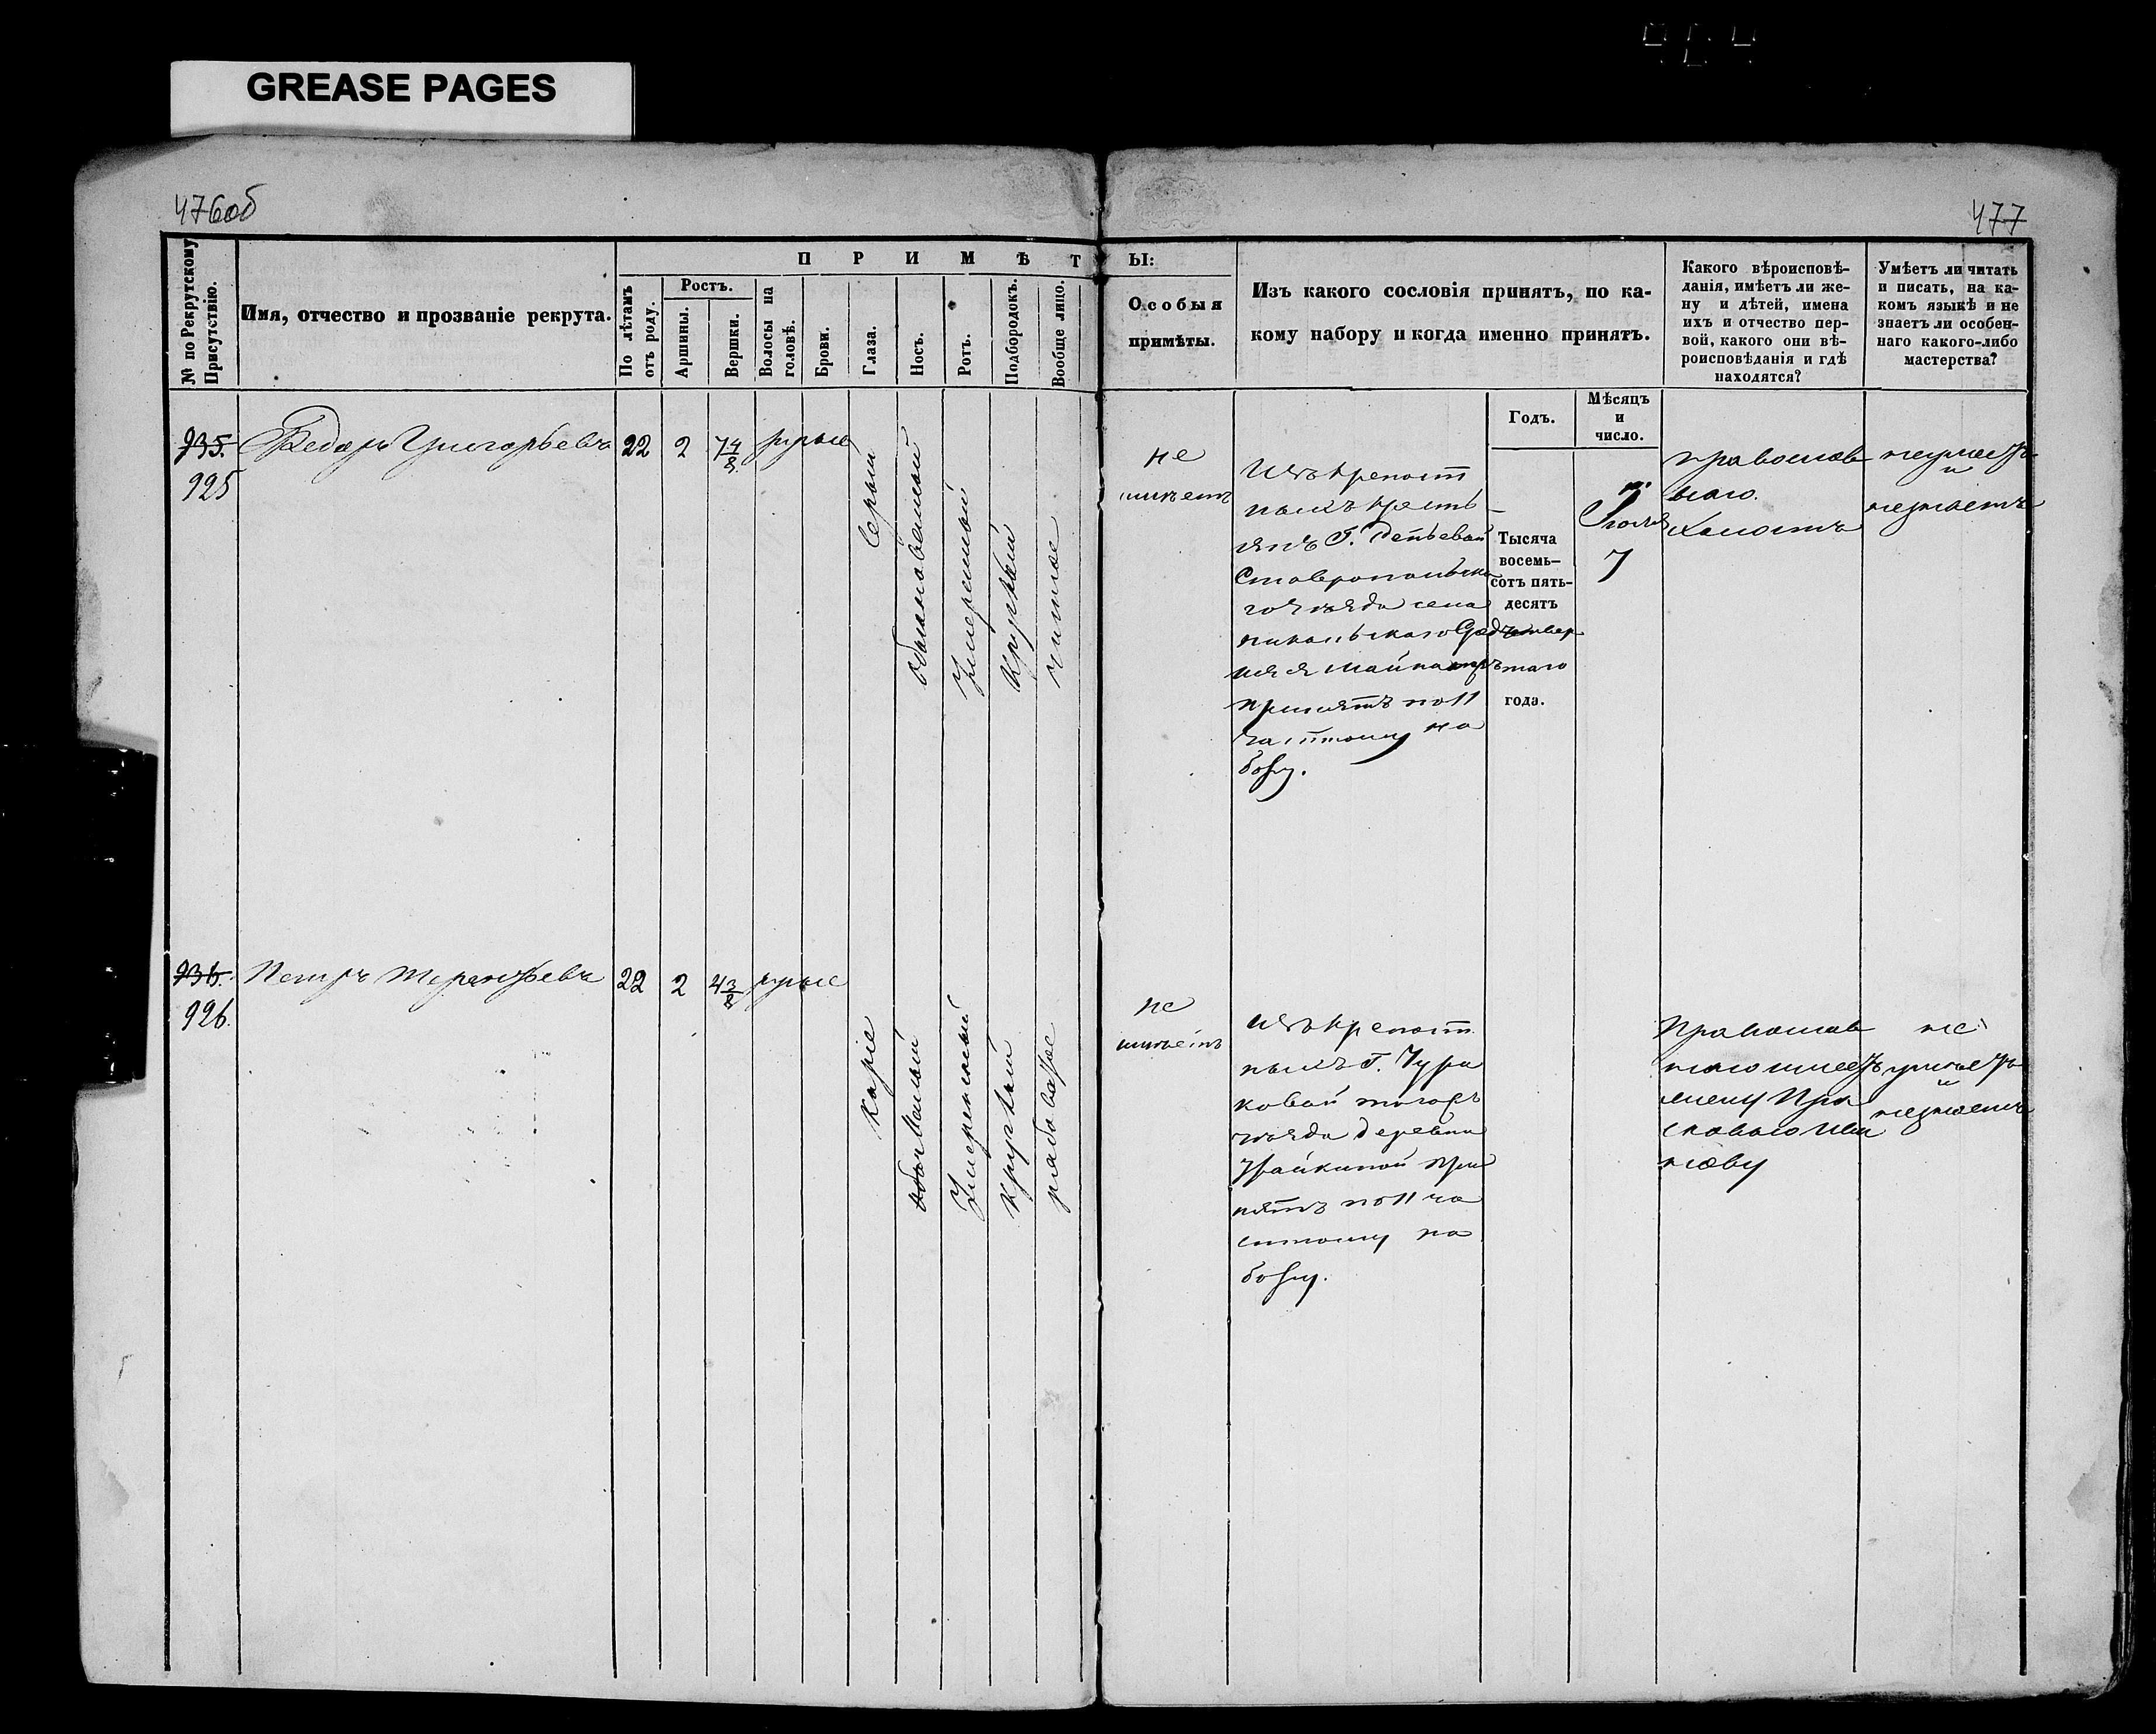 GREASE PAGES
476об
477
№ по Рекрутскому Присутствію.
Имя, отчество и прозваніе рекрута.
ПРИМѢТЫ:
По лѣтамъ отъ роду.
Ростъ.
Аршины.
Вершки.
Волосы на головѣ.
Брови.
Глаза.
Носъ.
Ротъ.
Подбородокъ.
Вообще лицо.
Особыя
примѣты.
Изъ какого сословія принятъ, по ка-
кому набору и когда именно принятъ.
Какого вѣроисповѣ-
данія, имѣетъ ли же-
ну и дѣтей, имена
ихъ и отчество пер-
вой, какого они вѣ-
роисповѣданія и гдѣ
находятся?
Умѣетъ ли читать
и писать, на ка-
комъ языкѣ и не
знаетъ ли особен-
наго какого-либо
мастерства?
Годъ.
Мѣсяцъ
и
число.
935.
925
Федоръ Григорьевъ
22
2
7 4/8
русые
Серыи
обыкновенный
Умеренный
Круглый
чистое
не
имѣетъ
Изъ крепост
ныхъ кресть
янъ Г.
Ставропольска
го уѣзда села
никольскаго
принятъ по 11
частному на
бору.
Тысяча
восемь-
сотъ пять-
десятъ
четвер
таго
года.
Іюля
7
православ
наго.
Холостъ
неумеетъ
и
незнаетъ
936.
926.
Петръ Терентьевъ
22
2
4 3/8
русые
Каріе
Малый
Умеренный
Круглый
рябоватое
не
имѣетъ
Изъ крепост
ныхъ Г. Чури
ковой тогожъ
уѣзда деревни
при
нятъ по 11 ча
стному на
бору.
Православ
наго имеетъ
жену Пра
сковью Ива
нову
не
умѣетъ
и
незнаетъ